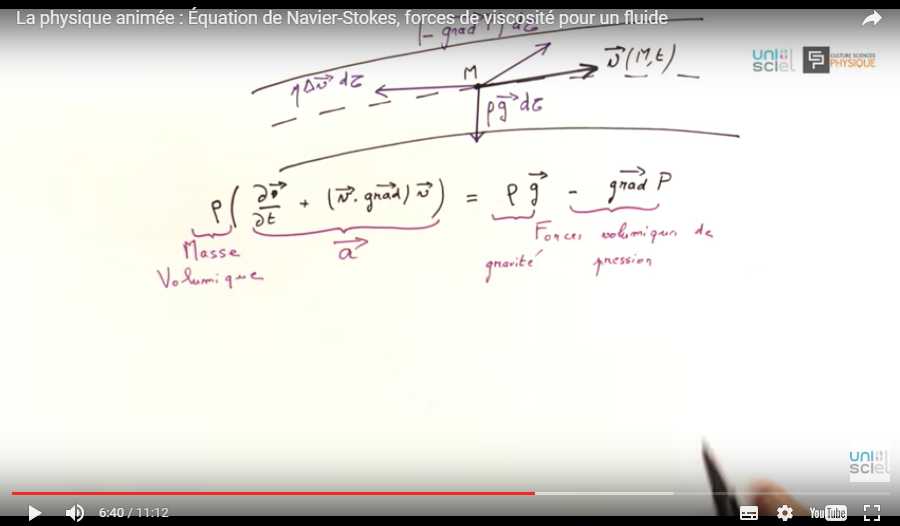 La physique animée : Équation de Navier-Stokes, forces de viscosité pour un fluide
(- grad P) dτ
uni sciel
CULTURE SCIENCES PHYSIQUE
η Δv⃗ dτ
M
v⃗ (M,t)
ρ g⃗ dτ
ρ ( ∂v⃗/∂t + (v⃗ . grad) v⃗ ) = ρ g⃗ - grad P
Masse Volumique
a⃗
gravité
Forces volumiques de pression
uni sciel
6:40 / 11:12
YouTube